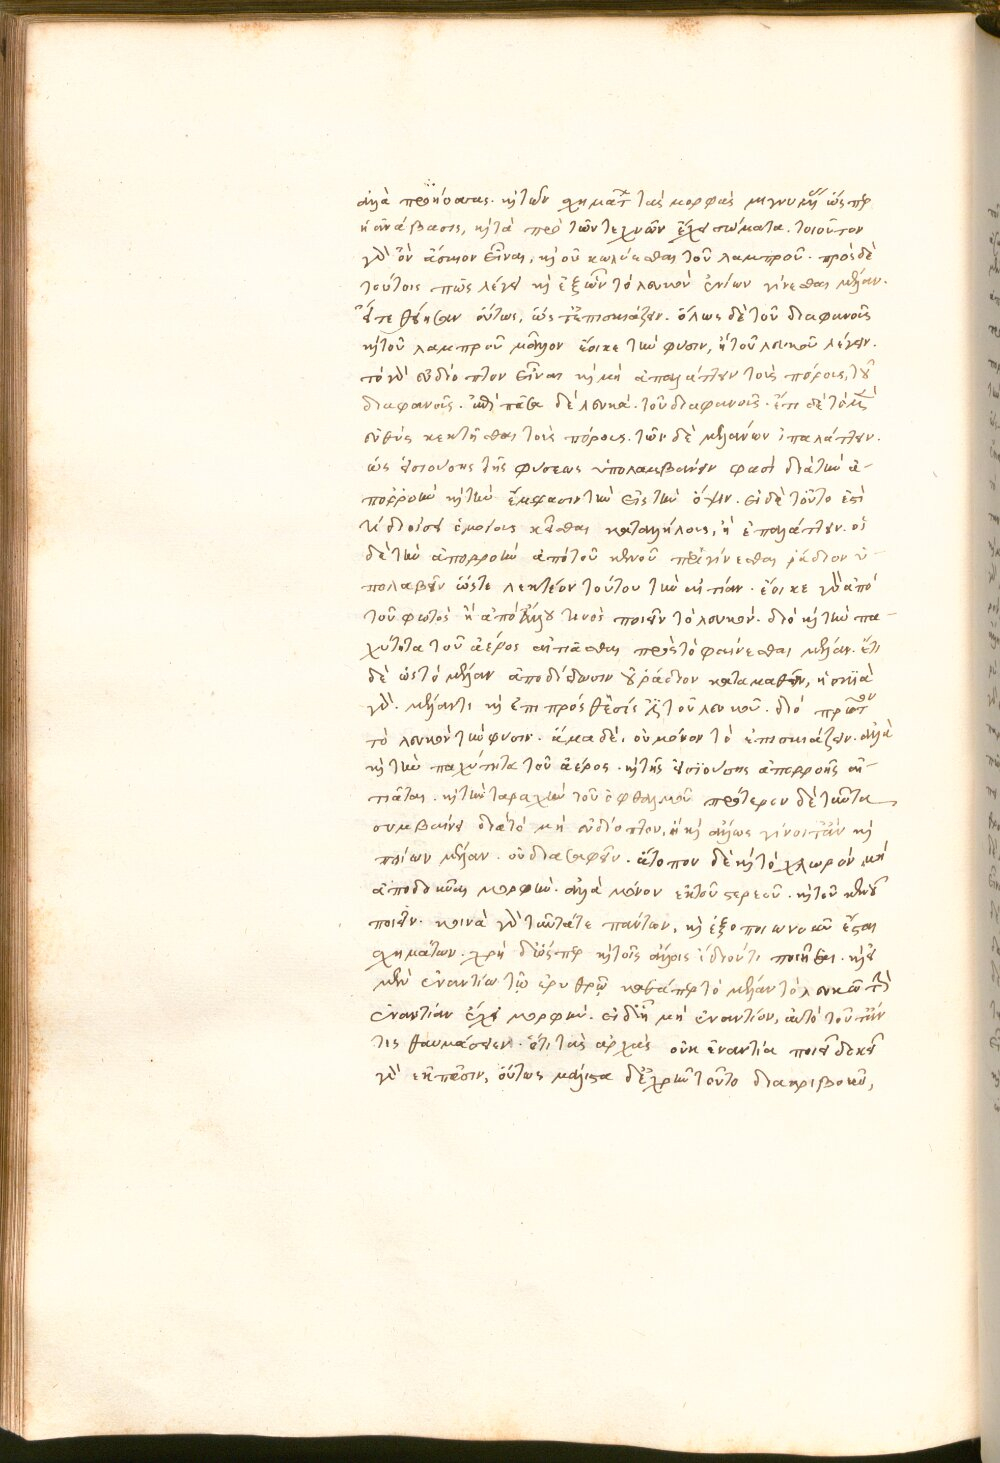 ἀλλὰ ποιήσαντας. καὶ τῶν σχημάτ τὰς μορφὰς μιγνυμέν ὥσπερ
ἡ ἀνάβασις, καὶ τὰ περὶ τῶν τεχνῶν ἔχει σώματα. τοιοῦτον
γὰρ ὂν ἄσκιον εἶναι, καὶ οὐ κωλύεσθαι τοῦ λαμπροῦ. πρὸς δὲ
τούτοις πῶς λέγει καὶ ἐξ ὧν τὸ λευκὸν ἐνίων γίνεσθαι μέλαν.
εἴτε θείησαν οὕτως, ὥστ' ἐπισκιάζειν. ὅλως δὲ τοῦ διαφανοῦς
καὶ τοῦ λαμπροῦ μᾶλλον ἔοικε τὴν φύσιν, ἢ τοῦ λευκοῦ λέγειν.
τὸ γὰρ εὐδίοπτον εἶναι καὶ μὴ ἐπαλάττειν τοὺς πόρους, τοῦ
διαφανοῦς. πᾶσα δὲ λευκὰ. τοῦ διαφανοῦς. ἔτι δὲ τὸ μὲν
εὐθεῖς κεκτῆσθαι τοὺς πόρους. τῶν δὲ μελάνων ἐπαλάττειν.
ὡς εἰσιούσης τῆς φύσεως ὑπολαμβάνειν φασὶ διὰ τὴν ἀ-
πορροὴν καὶ τὴν ἔμφασιν τὴν εἰς τὴν ὄψιν. εἰ δὲ τοῦτο ἐστὶ
τί διοίσει ὁμοίοις κεῖσθαι κατ' ἀλλήλοις, ἢ ἐπαλάττειν. οὐ
δὲ τὴν ἀπορροὴν ἀπὸ τοῦ κενοῦ γίνεσθαι ῥάδιον ὑ-
πολαβεῖν ὥστε λεκτέον τούτου τὴν αἰτίαν. ἔοικε γὰρ ἀπὸ
τοῦ φωτὸς ἢ ἀπὸ ἄλλου τινὸς ποιεῖν τὸ λευκὸν. διὸ καὶ τὴν πα-
χύτητα τοῦ ἀέρος αἰτιᾶσθαι πρὸς τὸ φαίνεσθαι μέλαν. ἔτι
δὲ ὡς τὸ μέλαν ἀποδίδωσιν οὐ ῥάδιον καταμαθεῖν, ἡ σκιὰ
γὰρ. μέλαν τι καὶ ἐπιπρόσθεσίς ἐστι τοῦ λευκοῦ. διὸ πρῶτον
τὸ λευκὸν τὴν φύσιν. ἅμα δὲ, οὐ μόνον τὸ ἐπισκιάζειν. ἀλλὰ
καὶ τὴν παχύτητα τοῦ ἀέρος. καὶ τῆς εἰσιούσης ἀπορροῆς αἰ-
τιᾶται. καὶ τὴν ταραχὴν τοῦ ὀφθαλμοῦ πότερον δὲ ταῦτα
συμβαίνει διὰ τὸ μὴ εὐδίοπτον, ἢ καὶ ἄλλως γίνοιτ' ἂν καὶ
ποίων μέλαν. οὐ διασαφεῖν. ἄτοπον δὲ καὶ τὸ χλωρὸν μὴ
ἀποδοῦναι μορφὴν. ἀλλὰ μόνον ἐκ τοῦ στερεοῦ. καὶ τοῦ κενοῦ
ποιεῖν. κοινὰ γὰρ ταῦτά τε πάντων, καὶ ἐξ ὁποιωνοῦν ἔσται
σχημάτων. χρὴ δ' ὥσπερ καὶ τοῖς ἄλλοις ἴδιόν τι ποιῆσαι. καὶ εἰ
μὲν ἐναντίον τῷ ἐρυθρῷ καθάπερ τὸ μέλαν τὸ λευκῶ τὴν
ἐναντίαν ἔχει μορφὴν. εἰ δὲ μὴ ἐναντίον, αὐτὸ τοῦτ' ἄν
τις θαυμάσειεν. ὅτι τὰς ἀρχὰς οὐκ ἐναντία ποιεῖ δοκεῖ
γὰρ ἐν πᾶσιν, οὕτως μάλιστα δὲ χρῆν τοῦτο διακριβοῦν,